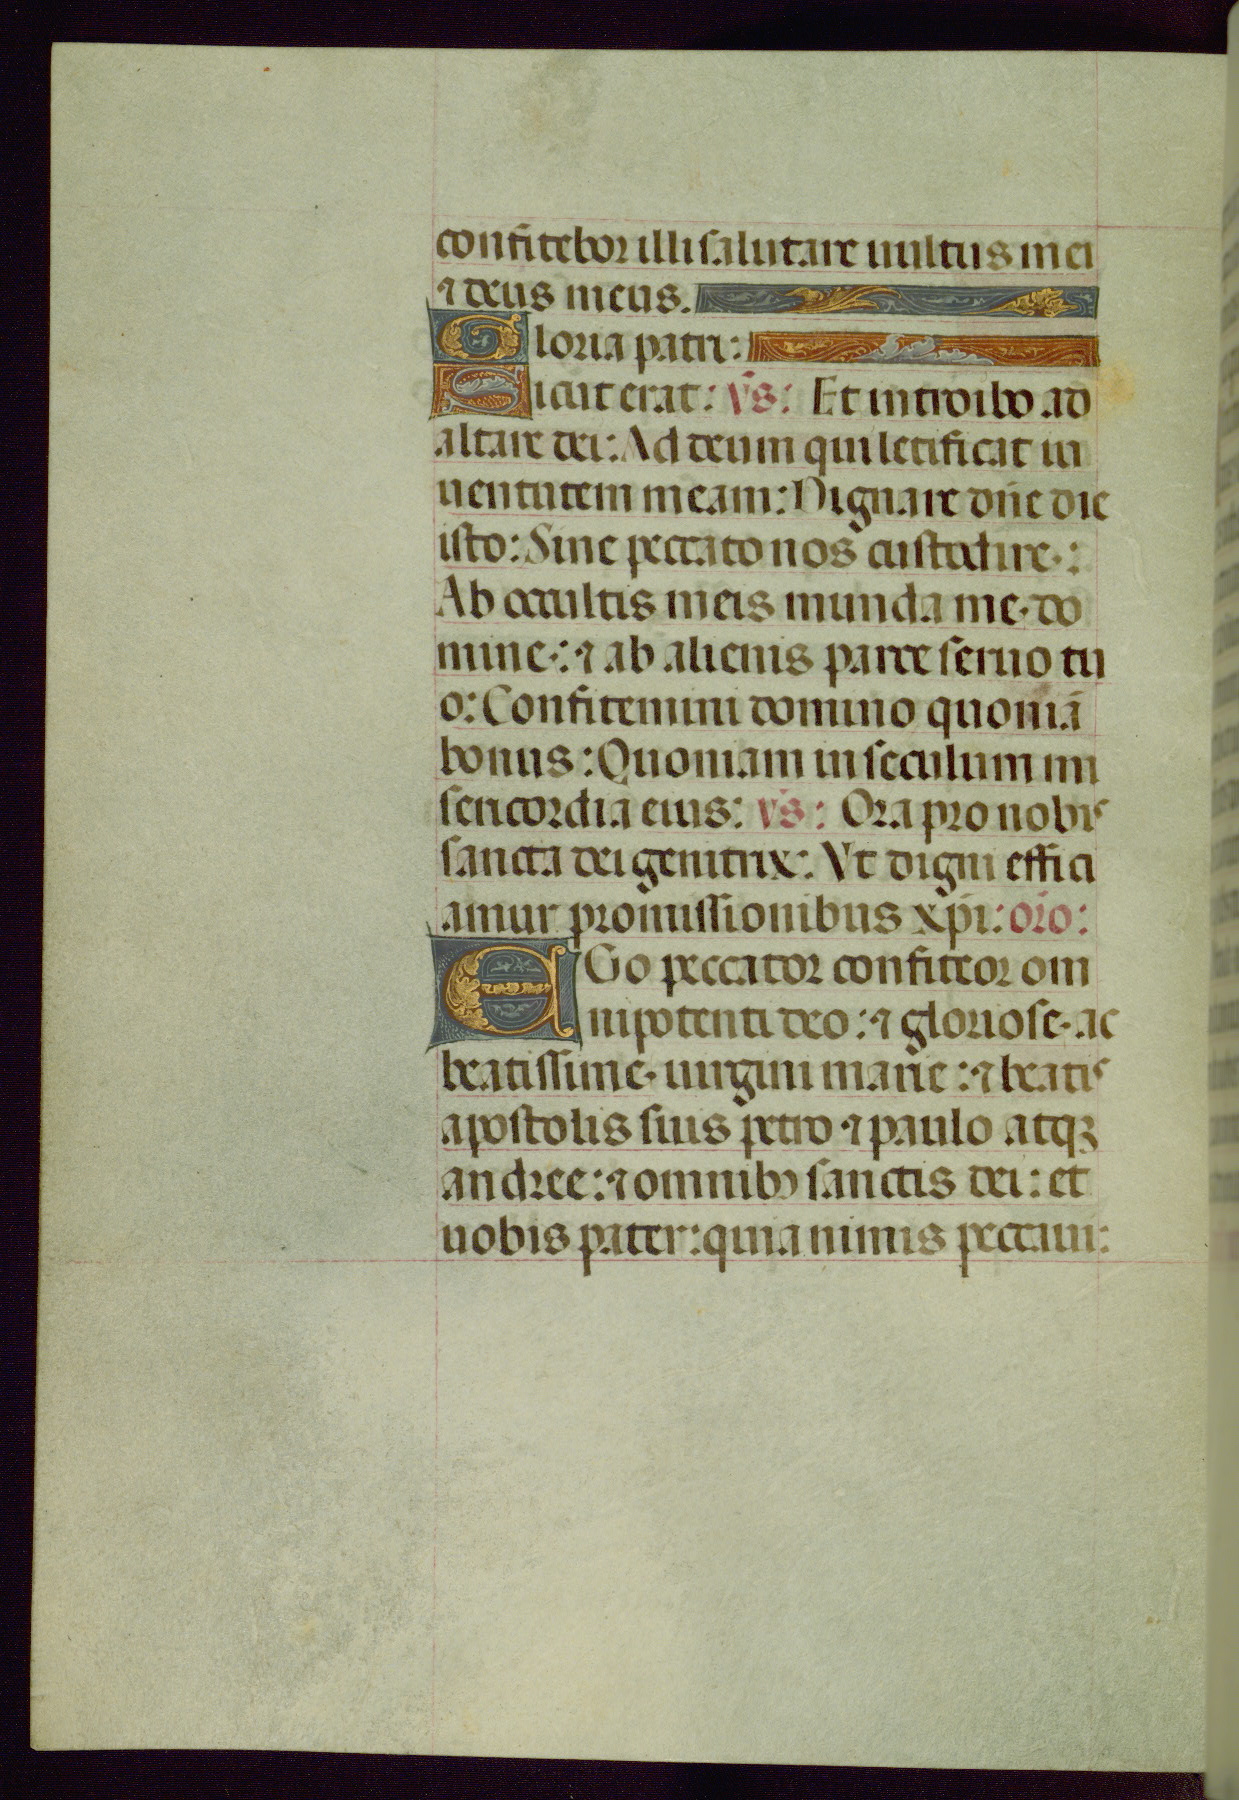 confitebor illi salutare uultus mei
⁊ deus meus.
Gloria patri:
Sicut erat: v̄s: Et introibo ad
altare dei: Ad deum qui letificat iu
uentutem meam: Dignare dn̄e die
isto: Sine peccato nos custodire:
Ab occultis meis munda me· do
mine·: ⁊ ab alienis parce seruo tu
o: Confitemini domino quoniā
bonus: Quoniam in seculum mi
sericordia eius: v̄s: Ora pro nobis
sancta dei genitrix: Vt digni effici
amur promissionibus xp̄i: or̄o:
EGo peccator confiteor om
nipotenti deo: ⁊ gloriose· ac
beatissime· uirgini marie: ⁊ beatis
apostolis suis petro ⁊ paulo atqꝫ
andree: ⁊ omnibꝰ sanctis dei: et
uobis pater: quia nimis peccaui: